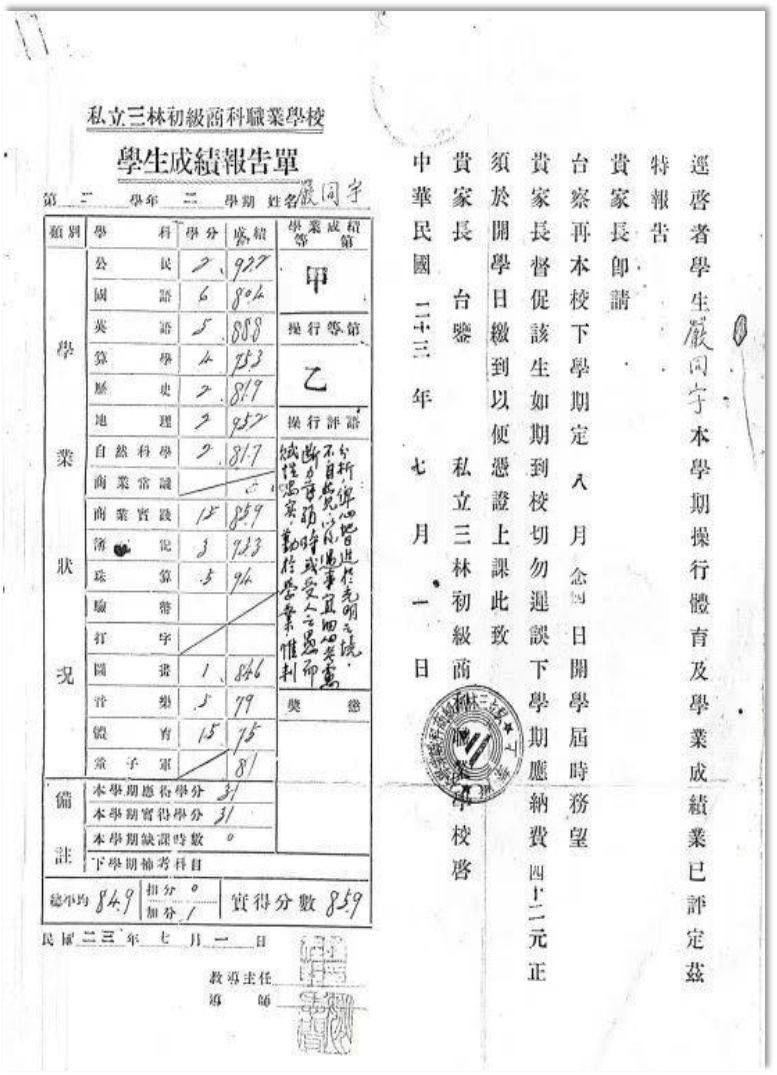 私立三林初級商科職業學校
學生成績報告單
第 二 學年 二 學期 姓名 嚴同宇
類別 學科 學分 成績 學業成績等第
學業狀況
公民 2 92.2
國語 6 80.4
英語 5 88.8
算學 4 75.3
歷史 2 81.9
地理 2 95.2
自然科學 2 81.7
商業常識
商業實踐 1.5 85.9
簿記 3 93.3
珠算 .5 94
驗幣
打字
圖畫 1 84.6
音樂 .5 79
體育 1.5 75
童子軍 81
甲
操行等第
乙
操行評語
賦性忠實，勤於學業，惟判
斷力薄弱，時或受人之愚而
不自知，以後遇事宜細心考慮
分析，俾心地日進於光明之境。
獎懲
備註
本學期應得學分 31
本學期實得學分 31
本學期缺課時數 0
下學期補考科目
總平均 84.9 扣分 0 加分 1 實得分數 85.9
民國 二三 年 七 月 一 日
教導主任
導師
逕啓者學生嚴同宇本學期操行體育及學業成績業已評定茲
特報告
貴家長卽請
台察再本校下學期定八月念四日開學屆時務望
貴家長督促該生如期到校切勿遲誤下學期應納費四十二元正
須於開學日繳到以便憑證上課此致
貴家長 台鑒 私立三林初級商科職業學校啓
中華民國二十三年七月一日